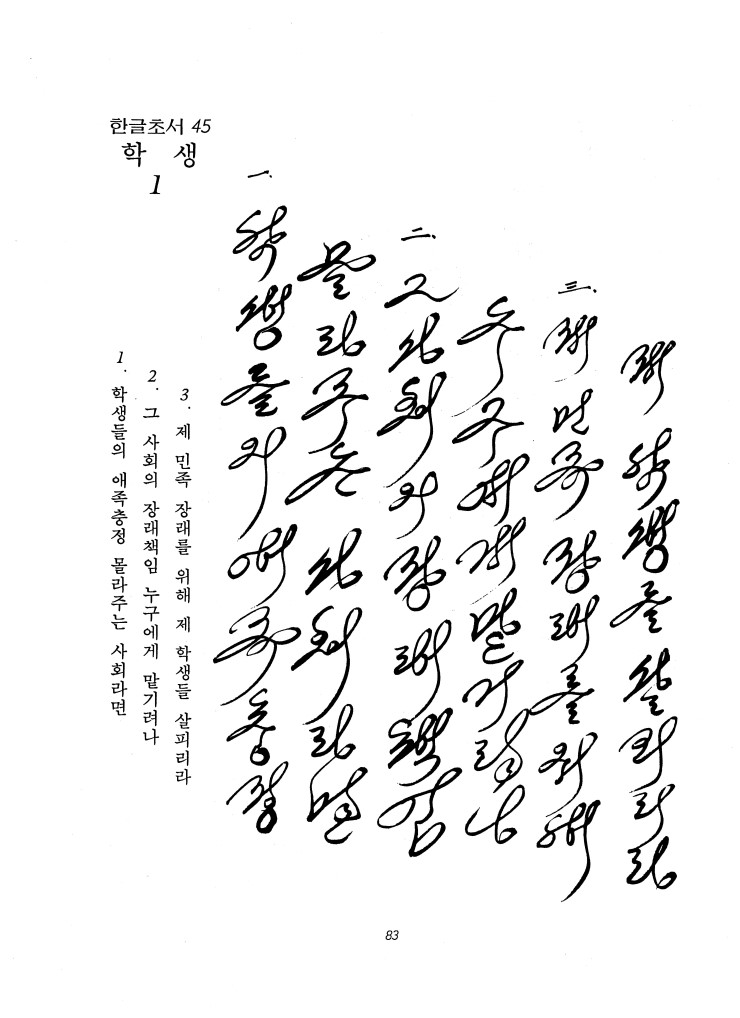 한글초서 45
학 생
1
1. 학생들의 애족충정 몰라주는 사회라면
2. 그 사회의 장래책임 누구에게 맡기려나
3. 제 민족 장래를 위해 제 학생들 살피리라
一.
학생들의 애족충정
몰라주는 사회라면
二.
그 사회의 장래책임
누구에게 맡기려나
三.
제 민족 장래를 위해
제 학생들 살피리라
83